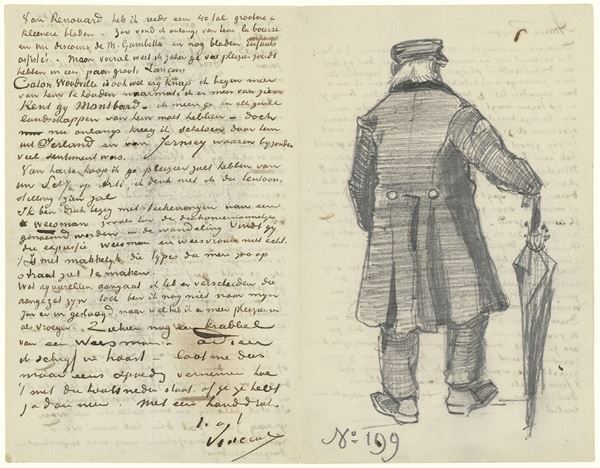 Van Renouard heb ik reeds een 40tal grootere &
kleinere bladen. Zoo vond ik onlangs van hem la bourse
en un discours de M. Gambetta en nog bladen Enfants
assistés. Maar vooral weet ik zeker ge veel plezier zoudt
hebben in een paar groote Lançons
Caton Woodville is ook wel erg knap ik begon meer
van hem te houden naarmate ik er meer van zien
Kent gij Montbard – ik meen ge in elk geval
landschappen van hem moet hebben – doch
nu onlangs kreeg ik schetsen door hem
uit Ierland en van Jersey waarin bijzonder
veel sentiment was.
Van harte hoop ik ge plezier zult hebben van
Uw Schij op Arti. ik denk met ik die tentoon-
stelling zien zal
Ik ben druk bezig met teekeningen van een
weesman zooals hier de diakoniemannetjes
genoemd worden in de wandeling. Vindt gij
die expressie weesman en weesvrouw niet echt.
't Is niet makkelijk die types die men zoo op
straat ziet te maken.
Wat aquarellen aangaat ik heb er verscheiden die
aangezet zijn toch ben ik nog niet naar mijn
zin er in geslaagd maar wel heb ik er meer plezier in
als vroeger. Ziehier nog een krabbel
van een weesman. – adieu
ik schrijf in haast – laat me dus
maar eens spoedig vernemen hoe
't met die houtsneden staat of ge ze hebt
ja dan neen. Met een handdruk.
t. à t.
Vincent
No 199